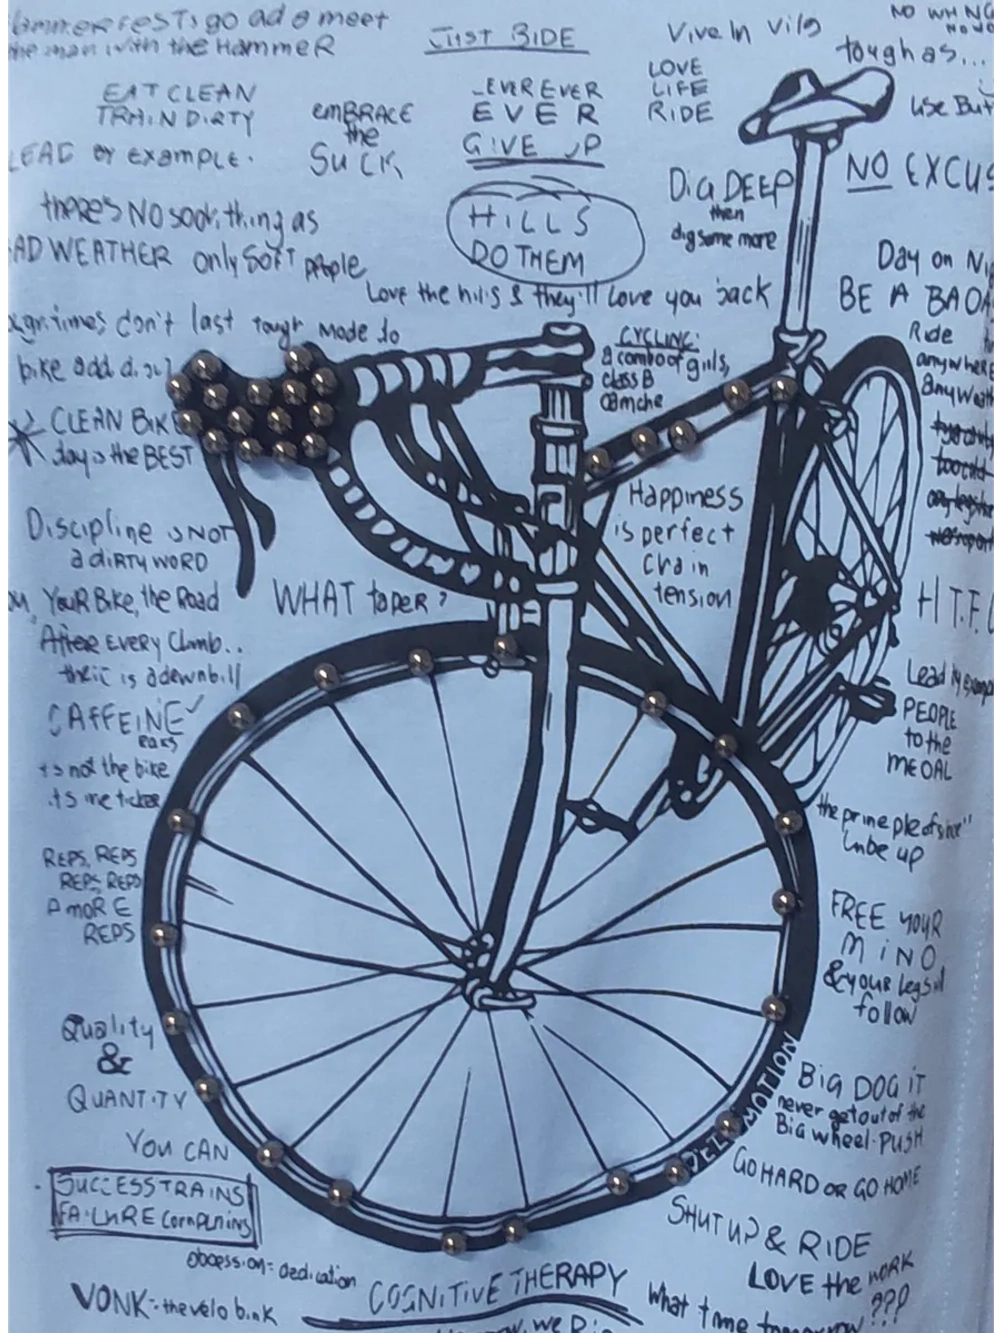 go ad a meet
the man with the HammeR
JUST RIDE
ViVe In Vilo
tough as...
EAT CLEAN
TRAIN DIRTY
emBRACE
the
SUCK
EVER EVER
EVER
GIVE UP
LOVE
LIFE
RIDE
USE BUT
LEAD BY example.
DIG DEEP
then
dig some more
NO EXCUS
theres NO sooch thing as
AD WEATHER only SOFT people
HILLS
DO THEM
Love the hills & they'll Love you back
Day on
BE A BADA
times don't last tough Mode do
bike add
CYCLING:
a combo of girls,
class B
Ride
anywhere
anyweath
CLEAN BIKE
day is the BEST
Happiness
is perfect
Chain
tension
Discipline is NOT
a diRTY WORD
YouR Bike, the Road
WHAT taper?
H T.F.
AfteR EVERy Climb..
their is a downhill
CAFFEINE
ts not the bike
Lead by exampl
PEOPLE
to the
MEDAL
REPS, REPS
REPS, REPS
A moRE
REPS
Lube up
FREE YOUR
MIND
& your legs
follow
Quality
&
QUANTITY
MOTION
BIG DOG iT
never get out of the
Big wheel-PUSH
YOU CAN
SUCCESS TRAINS
FAILURE complnins
GO HARD OR GO HOME
SHUT UP & RIDE
LOVE the WORK
obsession = dedication
COGNITIVE THERAPY
VONK - the velo bink
What time tomorrow ???